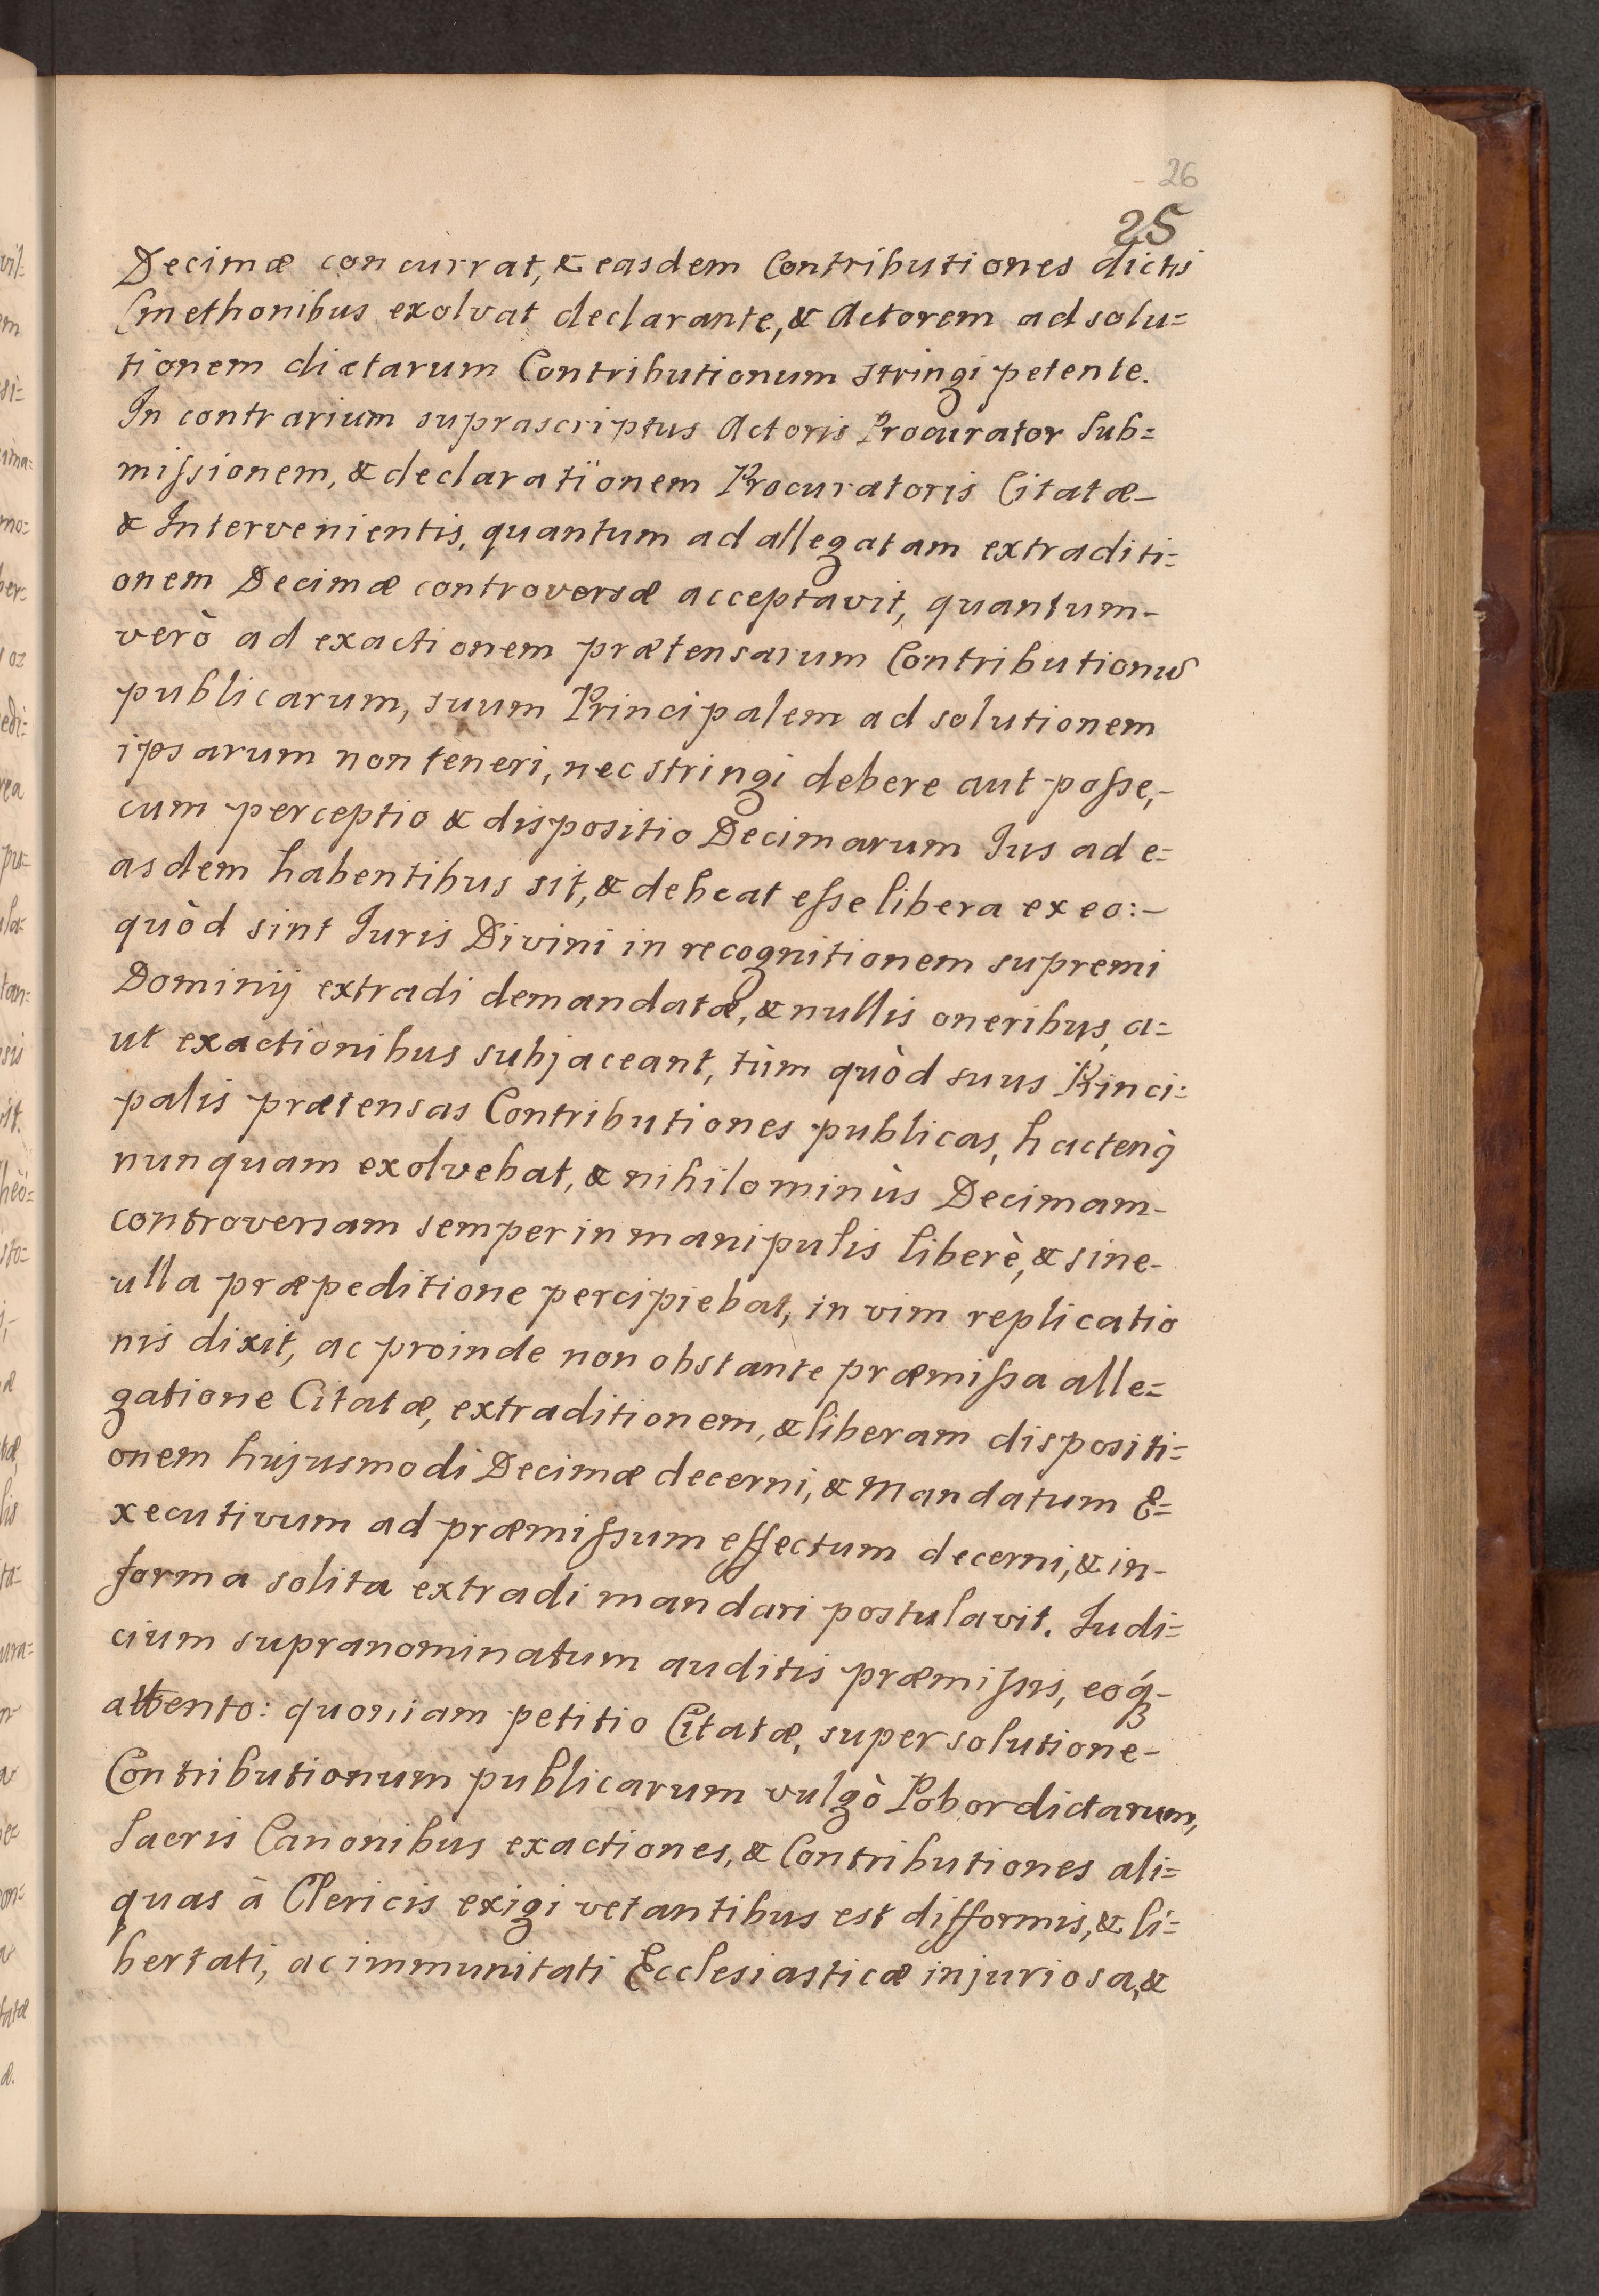 26
25
Decimæ concurrat, & easdem Contributiones dictis
Cmethonibus exolvat declarante, & Actorem ad solu=
tionem dictarum Contributionum stringi petente.
In contrarium suprascriptus Actoris Procurator Sub=
miſsionem, & declarationem Procuratoris Citatæ-
& Intervenientis, quantum ad allegatam extraditi=
onem Decimæ controversæ acceptavit, quantum-
verò ad exactionem prætensarum Contributionū
publicarum, suum Principalem ad solutionem
ipsarum non teneri, nec stringi debere aut poſse,-
cum perceptio & dispositio Decimarum Jus ad e=
asdem habentibus sit, & debeat eſse libera ex eo:-
quòd sint Juris Divini in recognitionem supremi
Dominij extradi demandatæ, & nullis oneribus, a=
ut exactionibus subjaceant, tùm quòd suus Princi=
palis prætensas Contributiones publicas, hactenꝰ
nunquam exolvebat, & nihilominùs Decimam-
controversam semper in manipulis liberè, & sine-
ulla præpeditione percipiebat, in vim replicatio
nis dixit, ac proinde non obstante præmiſsa alle=
gatione Citatæ, extraditionem, & liberam dispositi=
onem hujusmodi Decimæ decerni, & Mandatum E=
xecutivum ad præmiſsum effectum decerni, & in-
forma solita extradi mandari postulavit. Judi=
cium supranominatum auditis præmiſsis, eóq́-
attento: quoniam petitio Citatæ, super solutione-
Contributionum publicarum vulgò Pobor dictarum,
Sacris Canonibus exactiones, & Contributiones ali=
quas à Clericis exigi vetantibus est difformis, & li=
bertati, ac immunitati Ecclesiasticæ injuriosa, &